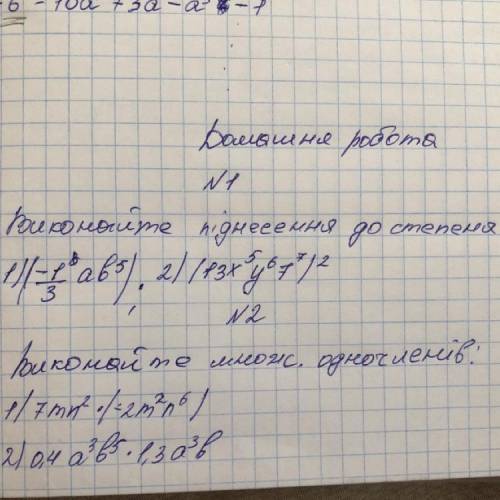 6 - 10a + 3a - a³ - 1
Домашня робота
N1
Виконайте піднесення до степеня
1) (-1/3 ab⁵); 2) (13x⁵y⁶7⁷)²
N2
Виконайте множ. одночленів:
1) 7mn² · (-2m²n⁶)
2) 0,4 a³b⁵ · 1,3a³b